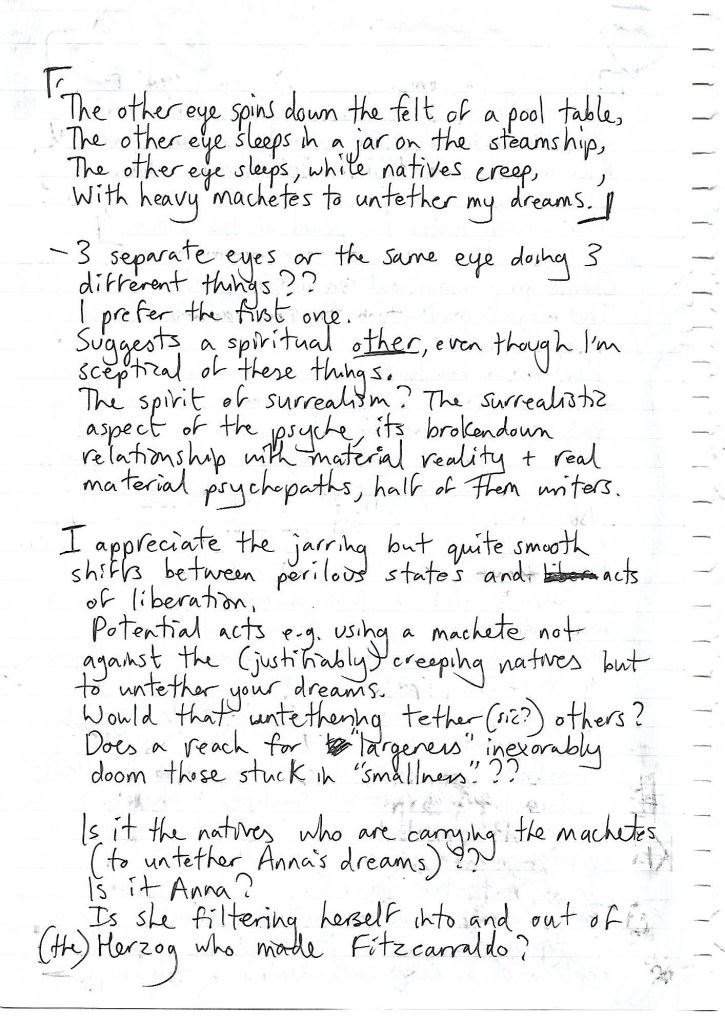 The other eye spins down the felt of a pool table,
The other eye sleeps in a jar on the steamship,
The other eye sleeps, while natives creep,
With heavy machetes to untether my dreams.
- 3 separate eyes or the same eye doing 3
different things??
I prefer the first one.
Suggests a spiritual other, even though I'm
sceptical of these things.
The spirit of surrealism? The surrealistic
aspect of the psyche, its brokendown
relationship with material reality + real
material psychopaths, half of them writers.
I appreciate the jarring but quite smooth
shifts between perilous states and acts
of liberation.
Potential acts e.g. using a machete not
against the (justifiably) creeping natives but
to untether your dreams.
Would that untethering tether (sic?) others?
Does a reach for "largeness" inexorably
doom those stuck in "smallness"??
Is it the natives who are carrying the machetes
(to untether Anna's dreams)??
Is it Anna?
Is she filtering herself into and out of
(the) Herzog who made Fitzcarraldo?